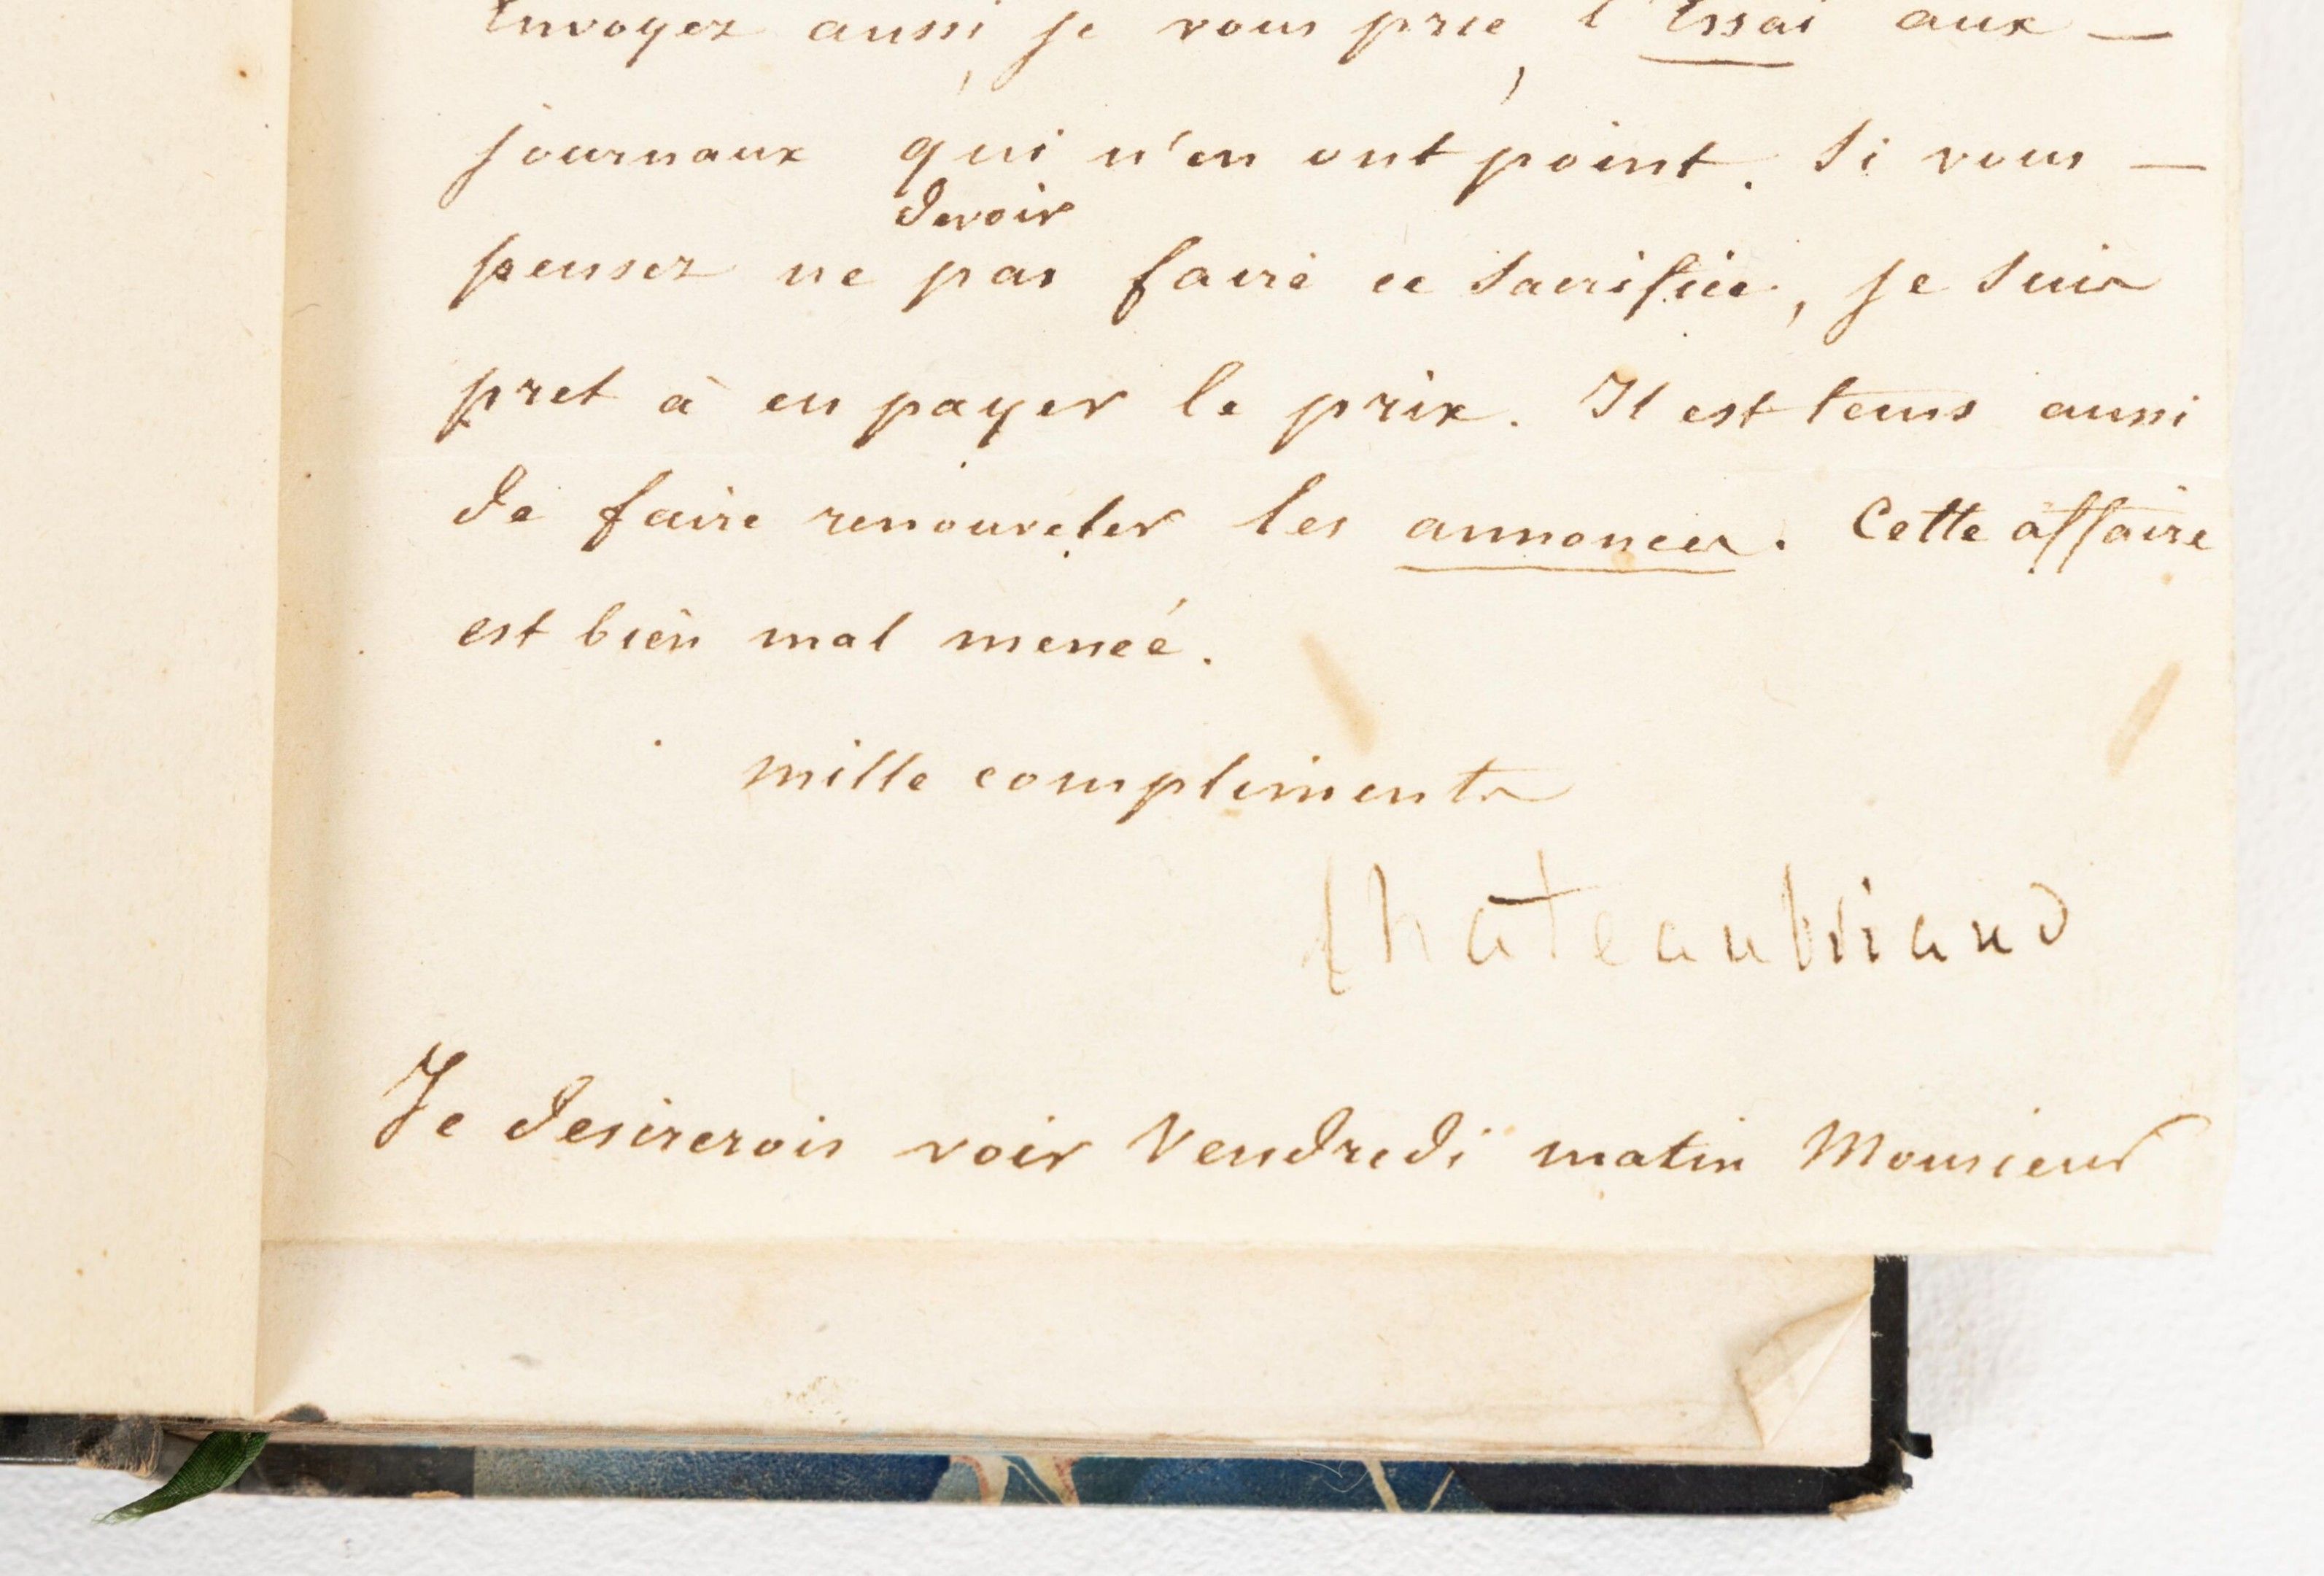 Envoyez aussi, je vous prie, l'Essai aux —
journaux qui n'en ont point. Si vous —
devoir
pensez ne pas faire ce sacrifice, je suis
pret à en payer le prix. Il est tems aussi
de faire renouveler les annonces. Cette affaire
est bien mal menée.
mille compliments
Chateaubriand
Je desirerois voir Vendredi matin Monsieur